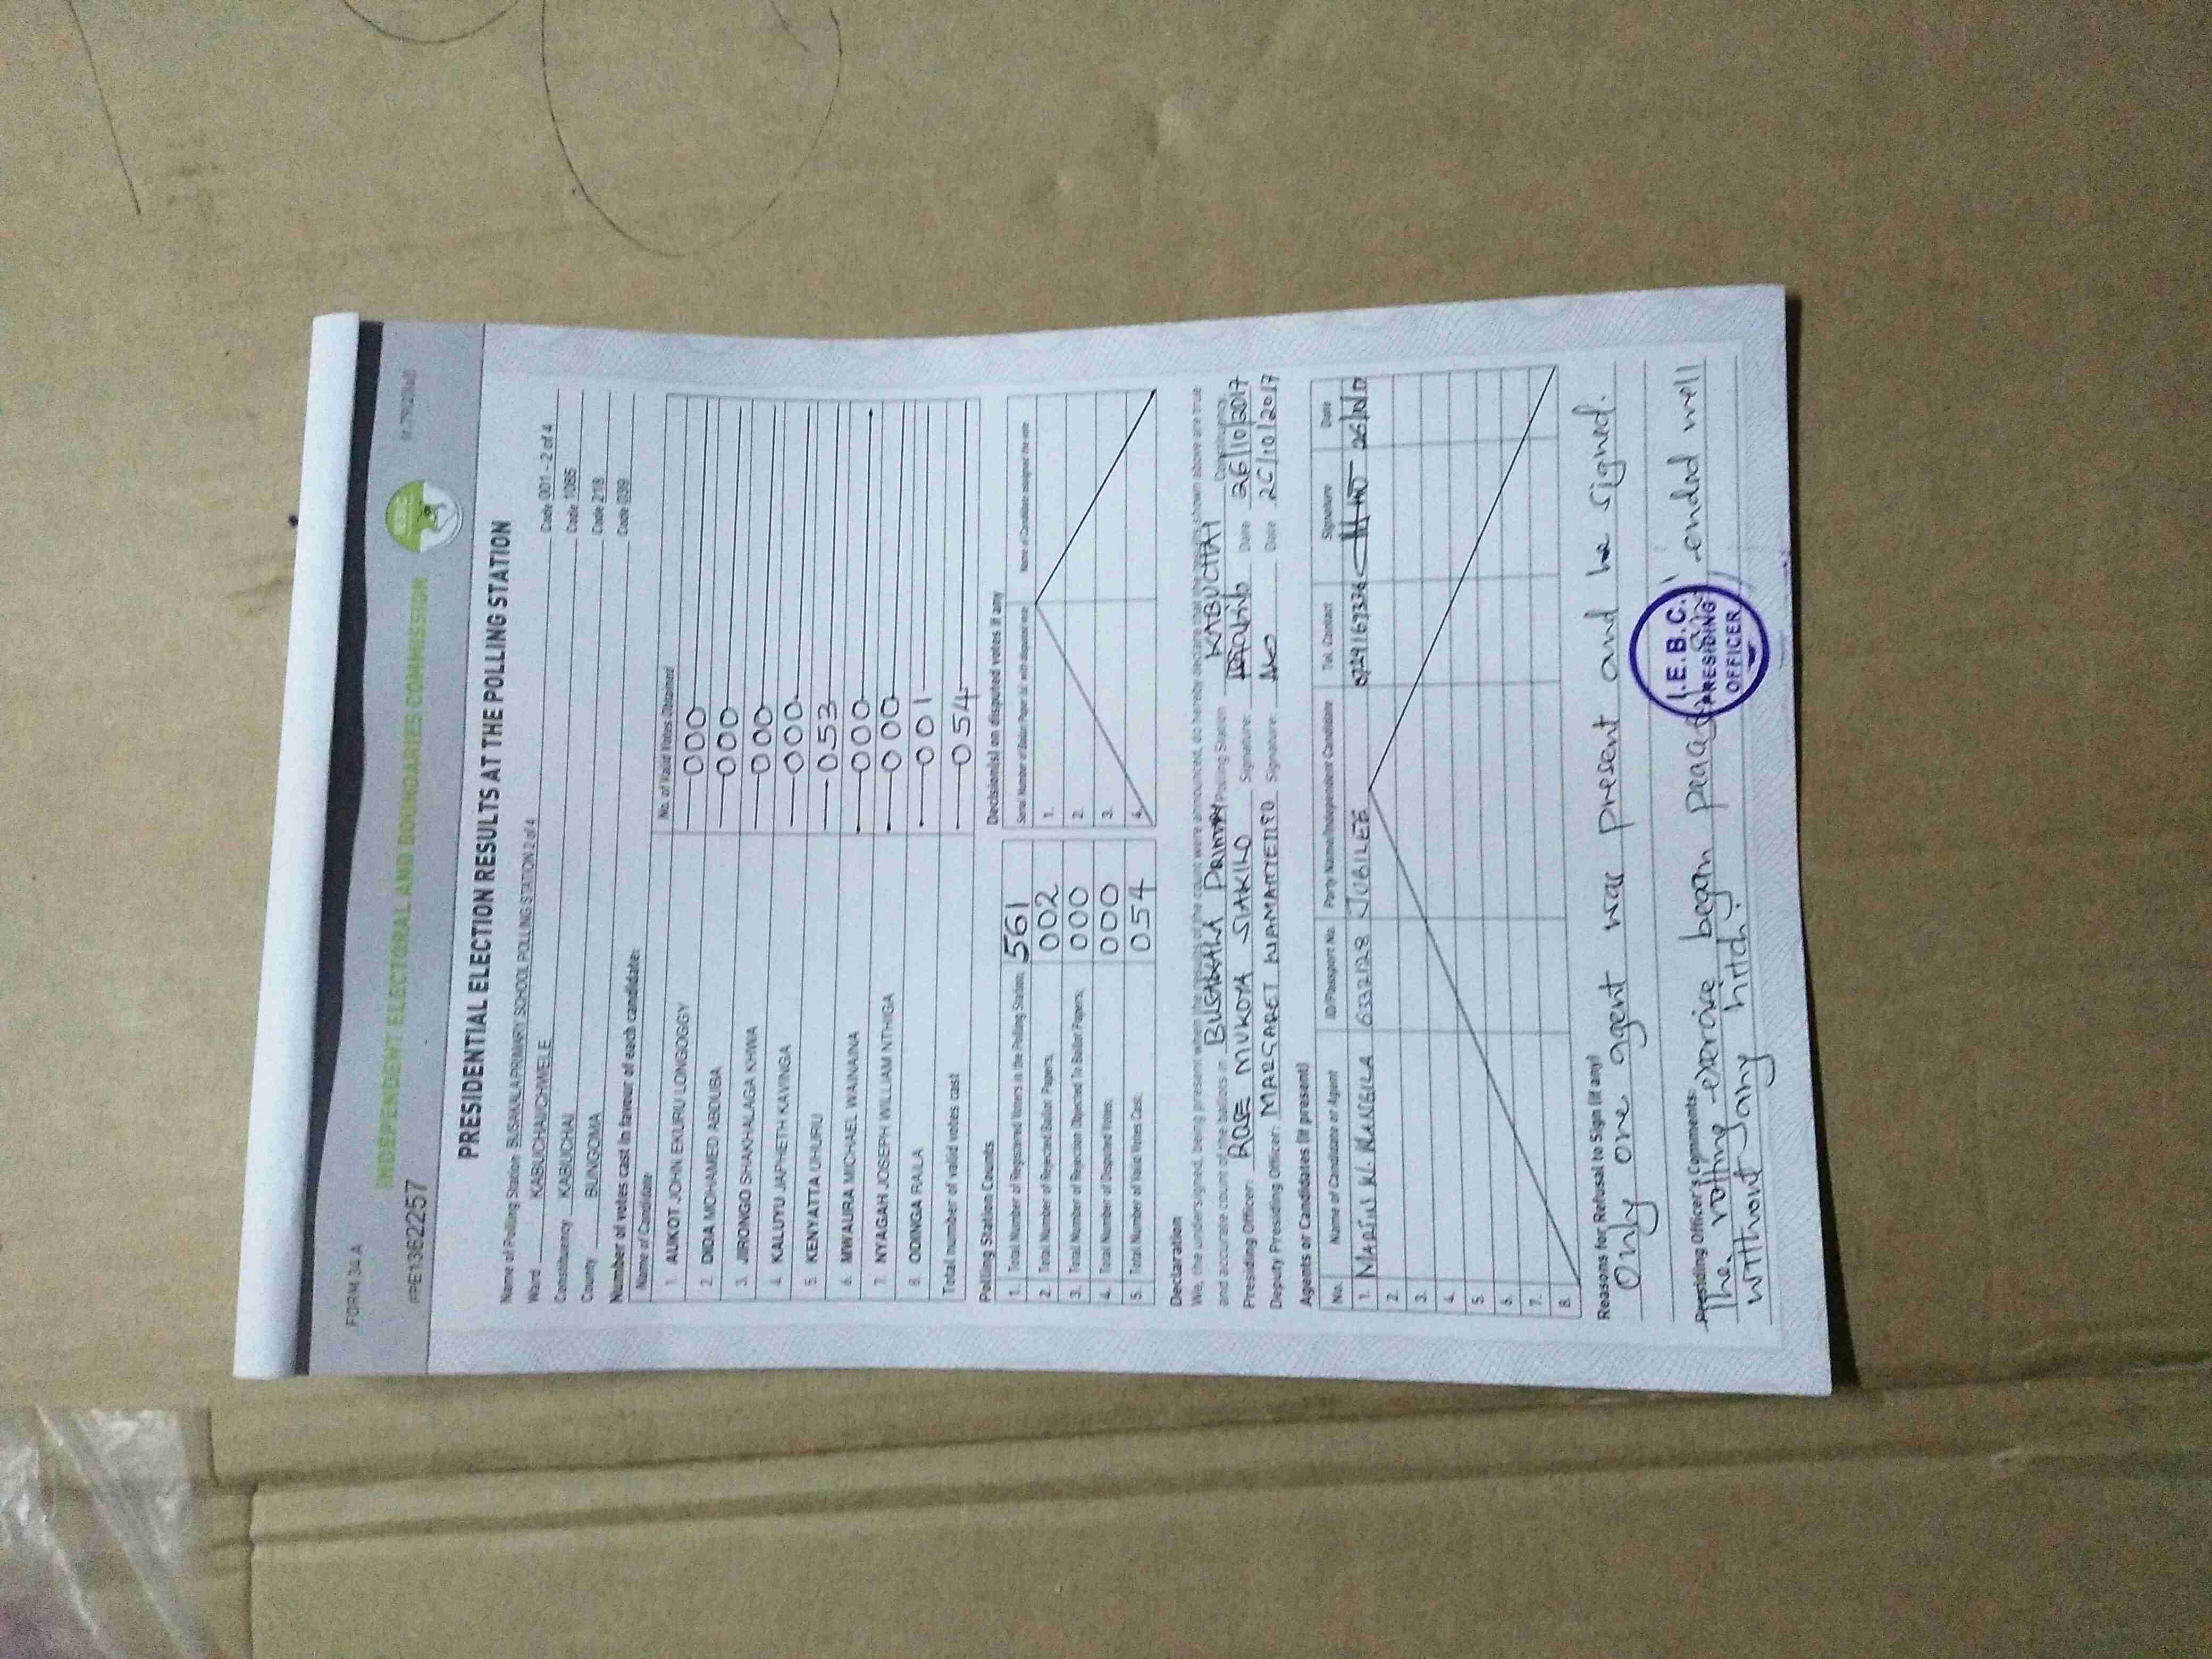 FORM 34 A
INDEPENDENT ELECTORAL AND BOUNDARIES COMMISSION
PPE1362257
PRESIDENTIAL ELECTION RESULTS AT THE POLLING STATION
Name of Polling Station BUSAKALA PRIMARY SCHOOL POLLING STATION 2 of 4 Code 001 - 2 of 4
Ward KABUCHAI/CHWELE Code 1085
Constituency KABUCHAI Code 218
County BUNGOMA Code 039
Number of votes cast in favour of each candidate:
Name of Candidate No. of Valid Votes Obtained
1. AUKOT JOHN EKURU LONGOGGY 000
2. DIDA MOHAMED ABDUBA 000
3. JIRONGO SHAKHALAGA KHWA 000
4. KALUYU JAPHETH KAVINGA 000
5. KENYATTA UHURU 053
6. MWAURA MICHAEL WAINAINA 000
7. NYAGAH JOSEPH WILLIAM NTHIGA 000
8. ODINGA RAILA 001
Total number of valid votes cast 054
Polling Station Counts
1. Total Number of Registered Voters in the Polling Station: 561
2. Total Number of Rejected Ballot Papers: 002
3. Total Number of Rejection Objected To Ballot Papers: 000
4. Total Number of Disputed Votes: 000
5. Total Number of Valid Votes Cast: 054
Decision(s) on disputed votes if any
Serial Number of Ballot Paper (s) with disputed vote Name of Candidate assigned the vote
1.
2.
3.
4.
Declaration
We, the undersigned, being present when the results of the count were announced, do hereby declare that the results shown above are true
and accurate count of the ballots in BUSAKALA PRIMARY Polling Station KABUCHAI Constituency
Presiding Officer: ROSE MUKOYA SIAKILO Signature: Date 26/10/2017
Deputy Presiding Officer: MARGARET Signature: Date 26/10/2017
Agents or Candidates (if present)
No. Name of Candidate or Agent ID/Passport No. Party Name/Independent Candidate Tel. Contact Signature Date
1. MARTIN W. 6332128 JUBILEE 0729167336
2.
3.
4.
5.
6.
7.
8.
Reasons for Refusal to Sign (if any)
Only one agent was present and he signed.
Presiding Officer's Comments:
The voting exercise began peacefully and ended well
without any hitch.
I.E.B.C.
PRESIDING
OFFICER